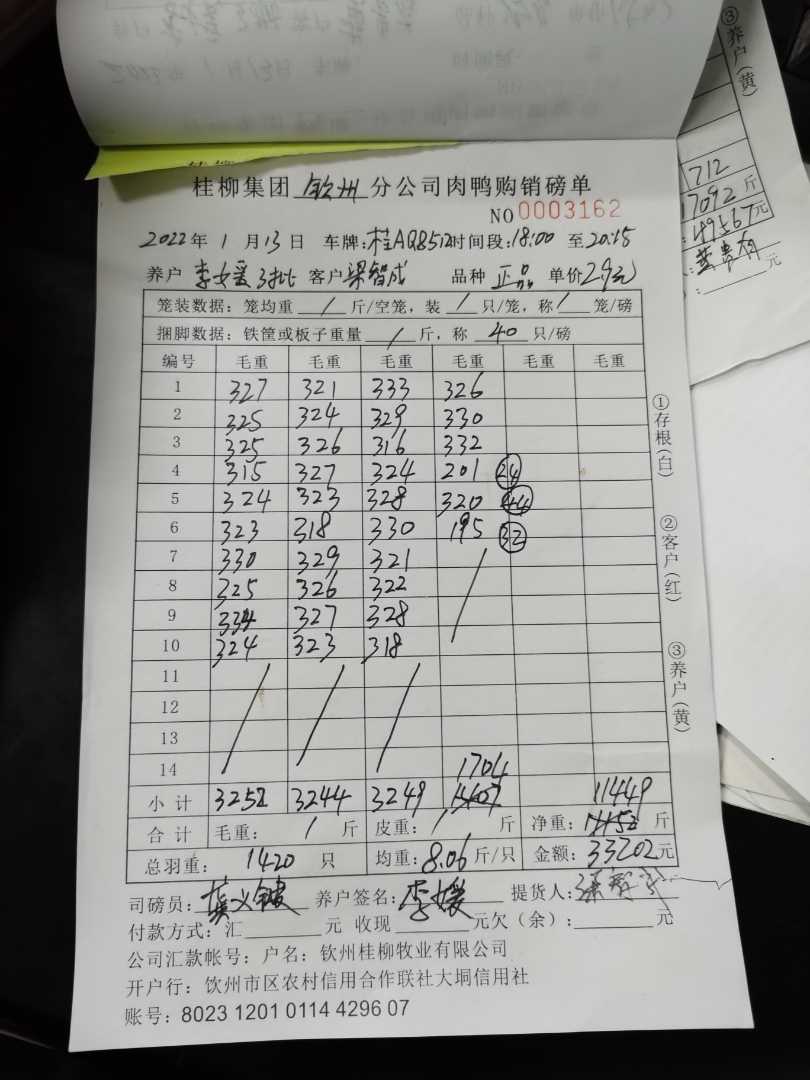 ③养户(黄)
1712
17092 斤
49567元
元
桂柳集团 钦州 分公司肉鸭购销磅单
NO 0003162
2022年 1 月 13 日 车牌: 桂AQ8512 时间段: 18:00 至 20:15
养户 李女媛 3批 客户 梁智成 品种 正品 单价 2.9元
笼装数据: 笼均重 / 斤/空笼, 装 / 只/笼, 称 / 笼/磅
捆脚数据: 铁筐或板子重量 / 斤, 称 40 只/磅
编号 毛重 毛重 毛重 毛重 毛重 毛重
1 327 321 333 326
2 325 324 329 330
3 325 326 316 332
4 315 327 324 201 24
5 324 323 328 320 44
6 323 318 330 195 32
7 330 329 321
8 325 326 322
9 334 327 328
10 324 323 318
11
12
13
14 1704
小计 3252 3244 3249 11449
合计 毛重: / 斤 皮重: / 斤 净重: 11452 斤
总羽重: 1420 只 均重: 8.06 斤/只 金额: 33202元
司磅员: 养户签名: 李媛 提货人:
付款方式: 汇 元 收现 元欠(余): 元
公司汇款帐号: 户名: 钦州桂柳牧业有限公司
开户行: 钦州市区农村信用合作联社大垌信用社
账号: 8023 1201 0114 4296 07
①存根(白)
②客户(红)
③养户(黄)